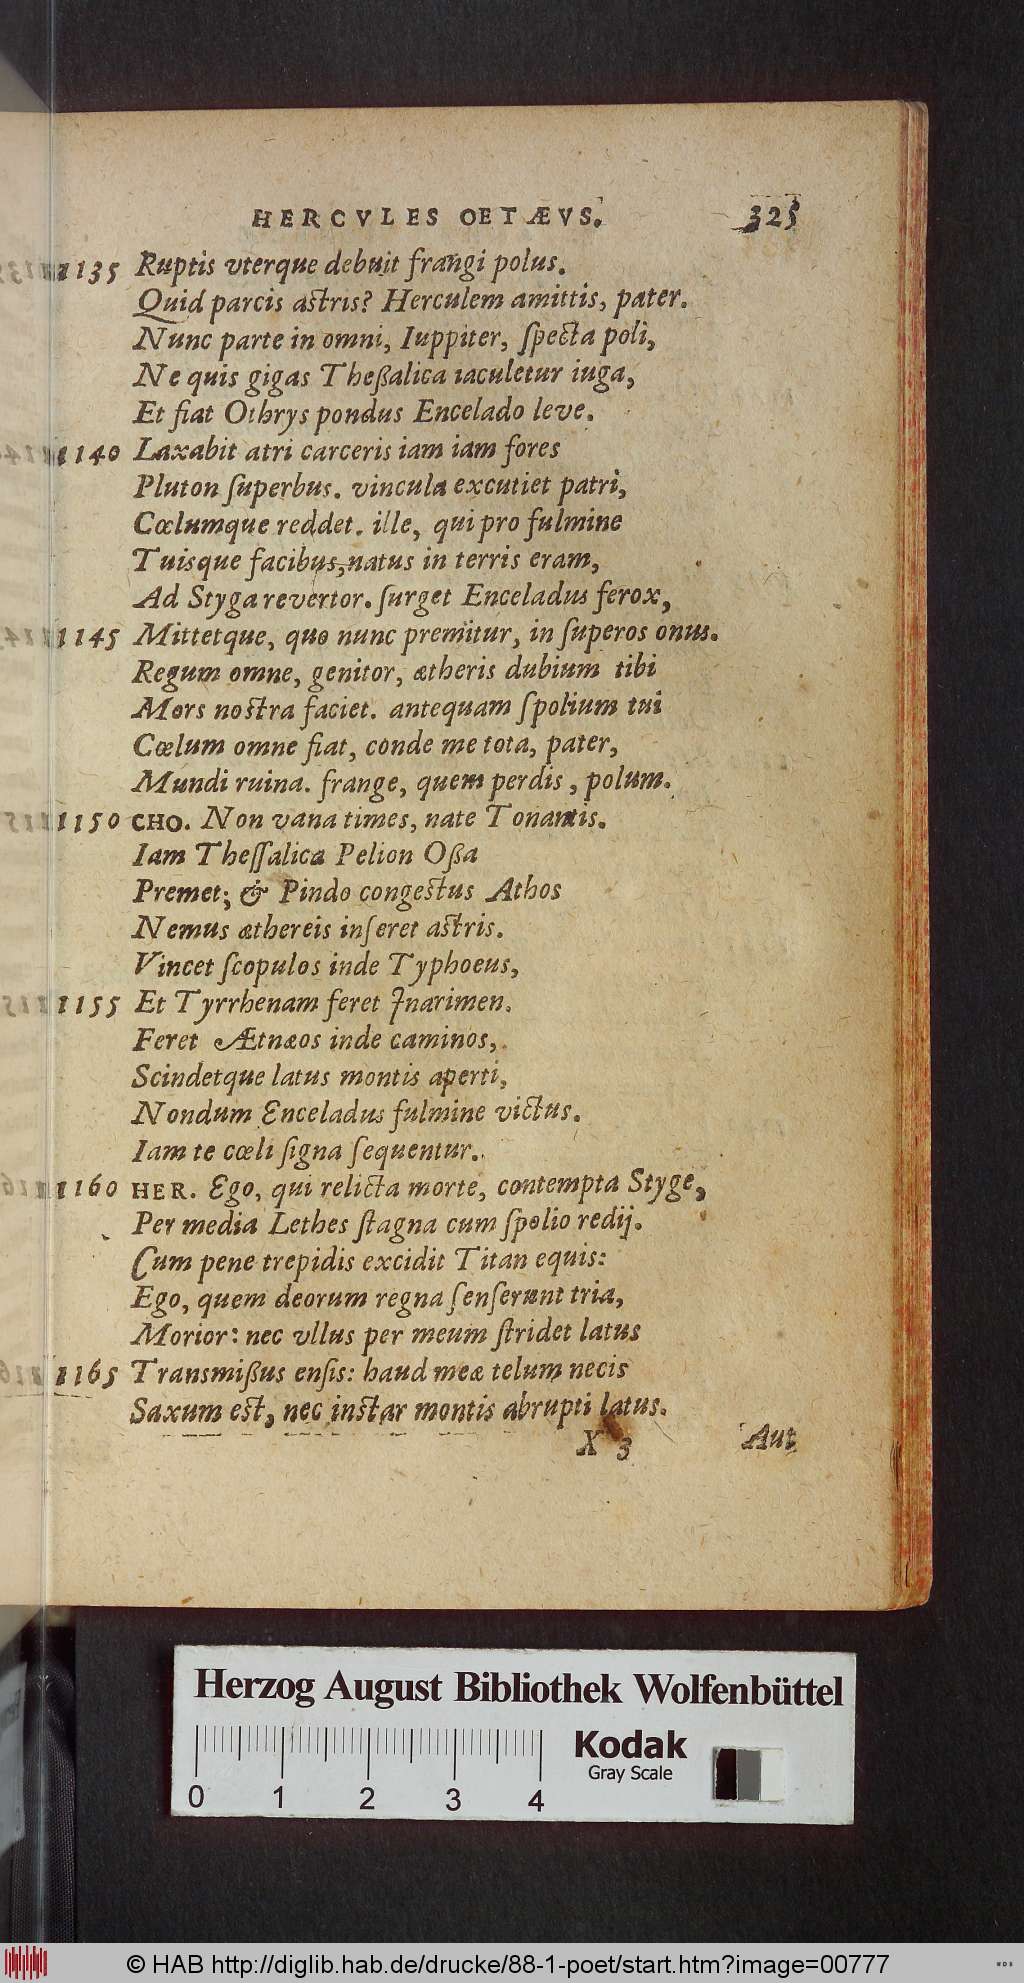 HERCVLES OETÆVS. 325
1135 Ruptis vterque debuit frangi polus.
Quid parcis astris? Herculem amittis, pater.
Nunc parte in omni, Iuppiter, ſpecta poli,
Ne quis gigas Theßalica iaculetur iuga,
Et fiat Othrys pondus Encelado leve.
1140 Laxabit atri carceris iam iam fores
Pluton ſuperbus. vincula excutiet patri,
Cœlumque reddet. ille, qui pro fulmine
Tuisque facibus, natus in terris eram,
Ad Styga revertor. ſurget Enceladus ferox,
1145 Mittetque, quo nunc premitur, in ſuperos onus.
Regum omne, genitor, ætheris dubium tibi
Mors nostra faciet. antequam ſpolium tui
Cœlum omne fiat, conde me tota, pater,
Mundi ruina. frange, quem perdis, polum.
1150 CHO. Non vana times, nate Tonantis.
Iam Theſſalica Pelion Oßa
Premet; & Pindo congestus Athos
Nemus æthereis inſeret astris.
Vincet ſcopulos inde Typhoeus,
1155 Et Tyrrhenam feret Inarimen.
Feret Ætnæos inde caminos,
Scindetque latus montis aperti,
Nondum Enceladus fulmine victus.
Iam te cœli ſigna ſequentur.
1160 HER. Ego, qui relicta morte, contempta Styge,
Per media Lethes ſtagna cum ſpolio redij.
Cum pene trepidis excidit Titan equis:
Ego, quem deorum regna ſenſerunt tria,
Morior: nec vllus per meum ſtridet latus
1165 Transmißus enſis: haud meæ telum necis
Saxum est, nec instar montis abrupti latus.
X 3 Aut
Herzog August Bibliothek Wolfenbüttel
Kodak
Gray Scale
0 1 2 3 4
© HAB http://diglib.hab.de/drucke/88-1-poet/start.htm?image=00777